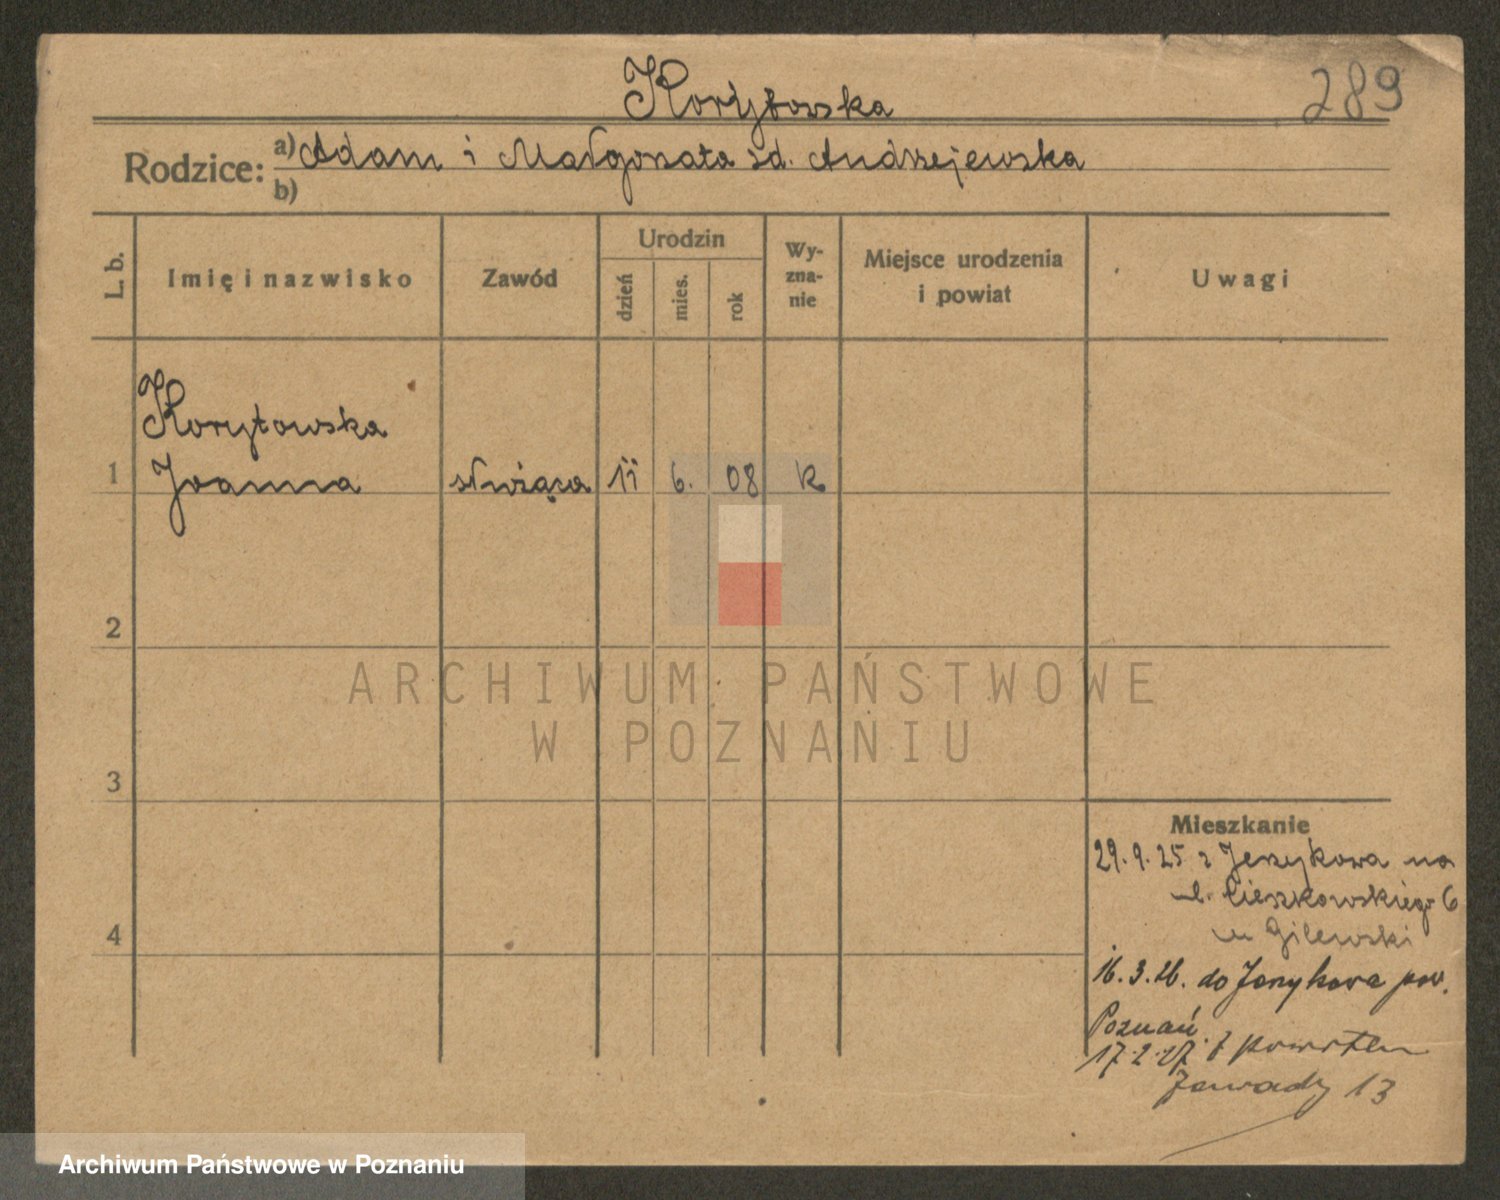 Korytowska
289
Rodzice: a) Adam i Małgorzata zd. Andrzejewska
b)
L. b.
Imię i nazwisko
Zawód
Urodzin
dzień
mies.
rok
Wy-
zna-
nie
Miejsce urodzenia
i powiat
Uwagi
Korytowska
1 Joanna służąca 11 6. 08 k.
2
3
4
Mieszkanie
29.9.25 z Jerzykowa na
ul. Cieszkowskiego 6
u Gilewski
16.3.26. do Jerzykowa pow.
Poznań.
17.2.27 z powrotem
Zawady 13
ARCHIWUM PAŃSTWOWE
W POZNANIU
Archiwum Państwowe w Poznaniu